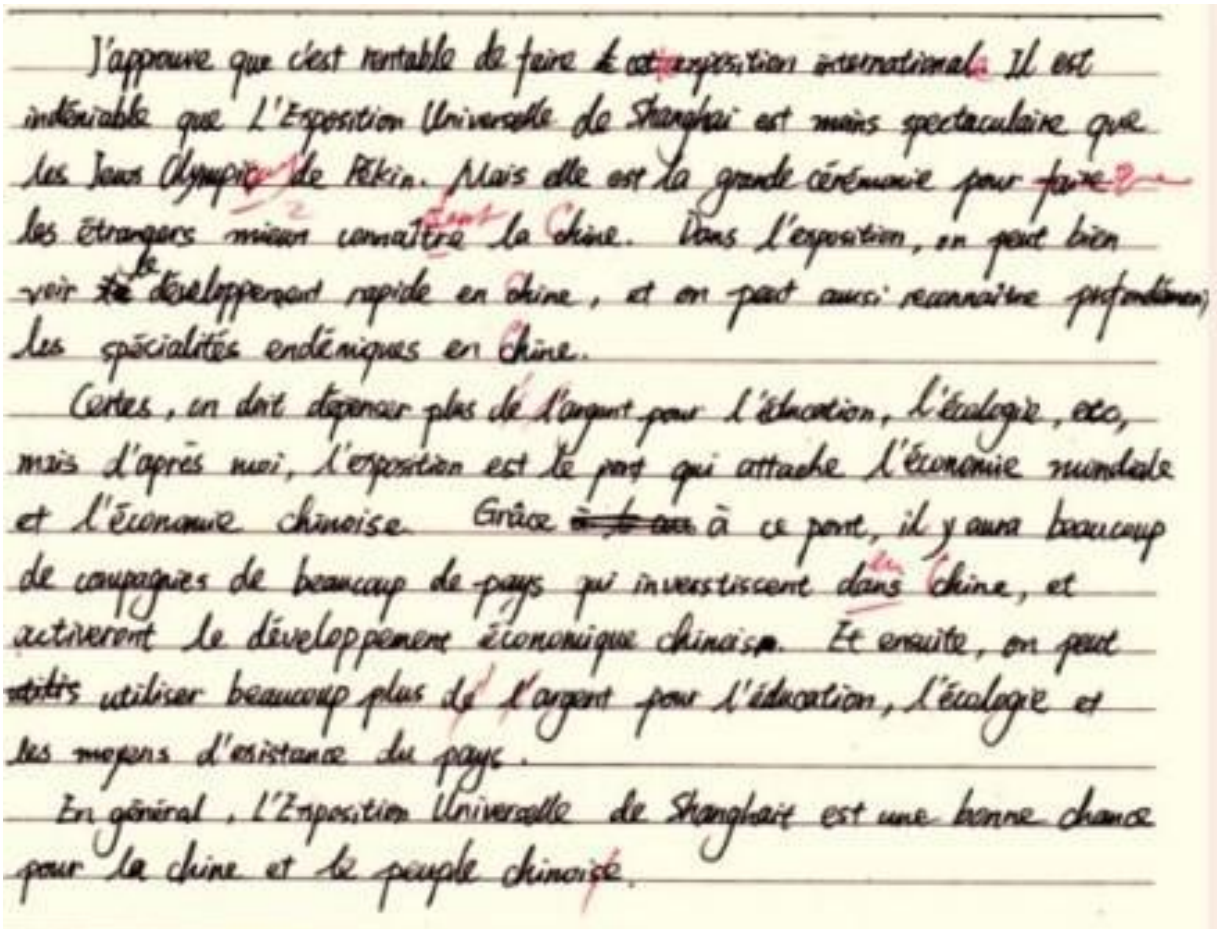 J'approuve que c'est rentable de faire cette exposition internationale Il est
indéniable que L'Exposition Universelle de Shanghai est moins spectaculaire que
les Jeux Olympic de Pékin. Mais elle est la grande cérémonie pour faire
les étrangers mieux connaître la Chine. Dans l'exposition, on peut bien
voir le développement rapide en Chine, et on peut aussi reconnaître profondément
les spécialités endémiques en Chine.
Certes, on doit dépenser plus de l'argent pour l'éducation, l'écologie, etc,
mais d'après moi, l'exposition est le pont qui attache l'économie mondiale
et l'économie chinoise. Grâce à ce pont, il y aura beaucoup
de compagnies de beaucoup de pays qui inverstissent dans en Chine, et
activeront le développement économique chinois. Et ensuite, on peut
utiliser beaucoup plus de l'argent pour l'éducation, l'écologie et
les moyens d'existance du pays.
En général, L'Exposition Universelle de Shanghait est une bonne chance
pour la chine et le peuple chinoise.